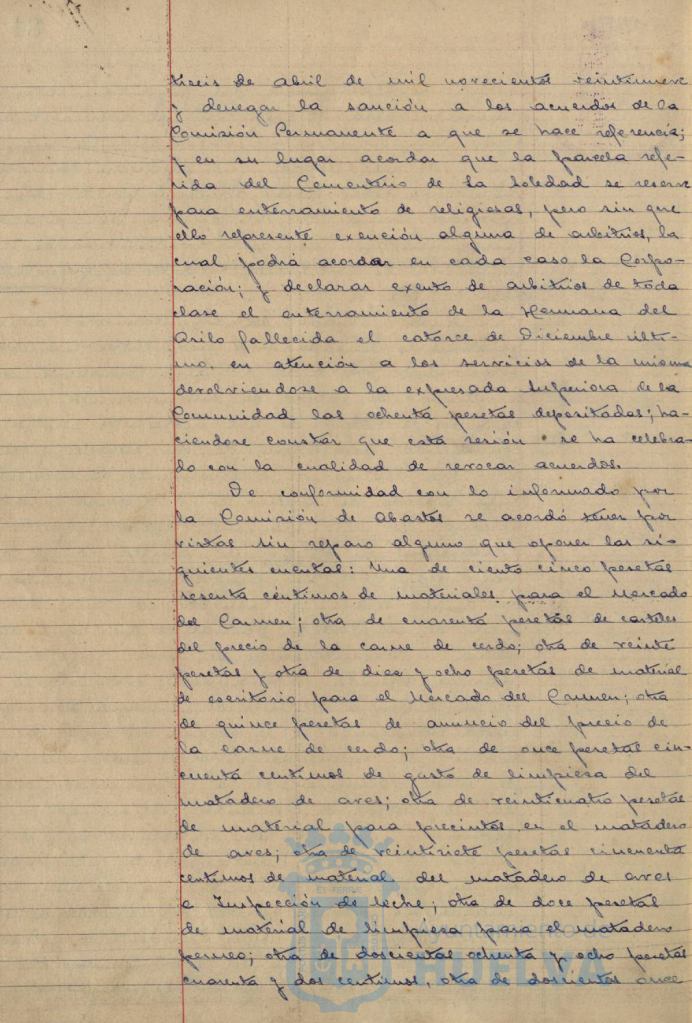 tiseis de abril de mil novecientos veintinueve
y denegar la sanción a los acuerdos de la
Comisión Permanente a que se hace referencia;
y en su lugar acordar que la parcela refe-
rida del Cementerio de la Soledad se reserve
para enterramiento de religiosas, pero sin que
ello represente exención alguna de arbitrios, la
cual podrá acordar en cada caso la Corpo-
ración; y declarar exento de arbitrios de toda
clase el enterramiento de la Hermana del
Asilo fallecida el catorce de Diciembre últi-
mo, en atención a los servicios de la misma
devolviendose a la expresada Superiora de la
Comunidad las ochenta pesetas depositadas; ha-
ciendose constar que esta sesión se ha celebra-
do con la cualidad de revocar acuerdos.
De conformidad con lo informado por
la Comisión de Abastos se acordó tener por
vistas sin reparo alguno que oponer las si-
guientes cuentas: Una de ciento cinco pesetas
sesenta céntimos de materiales para el Mercado
del Carmen; otra de cuarenta pesetas de carteles
del precio de la carne de cerdo; otra de veinte
pesetas y otra de diez y ocho pesetas de material
de escritorio para el Mercado del Carmen; otra
de quince pesetas de anuncio del precio de
la carne de cerdo; otra de once pesetas cin-
cuenta centimos de gasto de limpiesa del
matadero de aves; otra de veinticuatro pesetas
de material para precintos en el matadero
de aves; otra de veintisiete pesetas cincuenta
centimos de material del matadero de aves
e Inspección de leche; otra de doce pesetas
de material de limpiesa para el matadero
perneo; otra de doscientas ochenta y ocho pesetas
cuarenta y dos centimos, otra de doscientos once
HUELVA